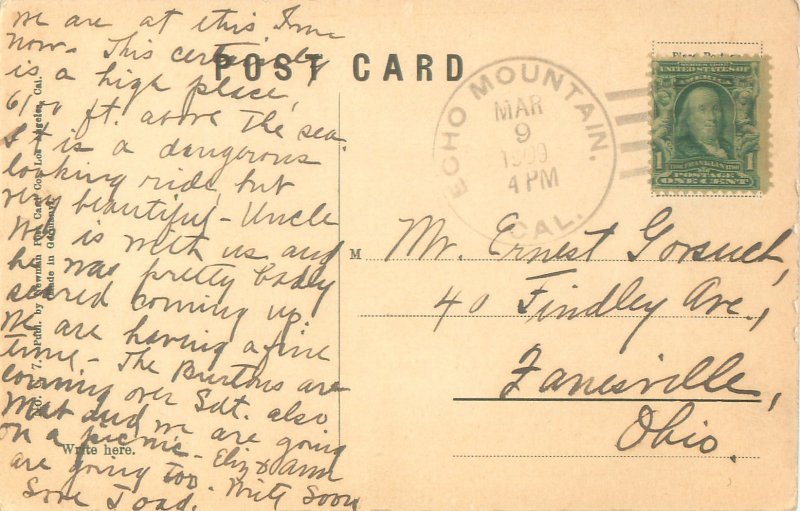 we are at this time
now. This certainly
is a high place,
6100 ft. above the sea.
It is a dangerous
looking ride, but
very beautiful - Uncle
is with us and
he was pretty badly
scared coming up.
We are having a fine
time - The Burtons are
coming over Sat. also
and we are going
on a picnic - Eliz & Ann
are going too. Write soon
Write here.
POST CARD
ECHO MOUNTAIN,
CAL.
MAR
9
1909
4 PM
UNITED STATES OF
AMERICA
1 FRANKLIN 1
POSTAGE
ONE CENT
M
Mr. Ernest Gorsuch,
40 Findley Ave.,
Zanesville,
Ohio.
Publ. by Newman Post Card Co., Los Angeles, Cal.
Made in Germany